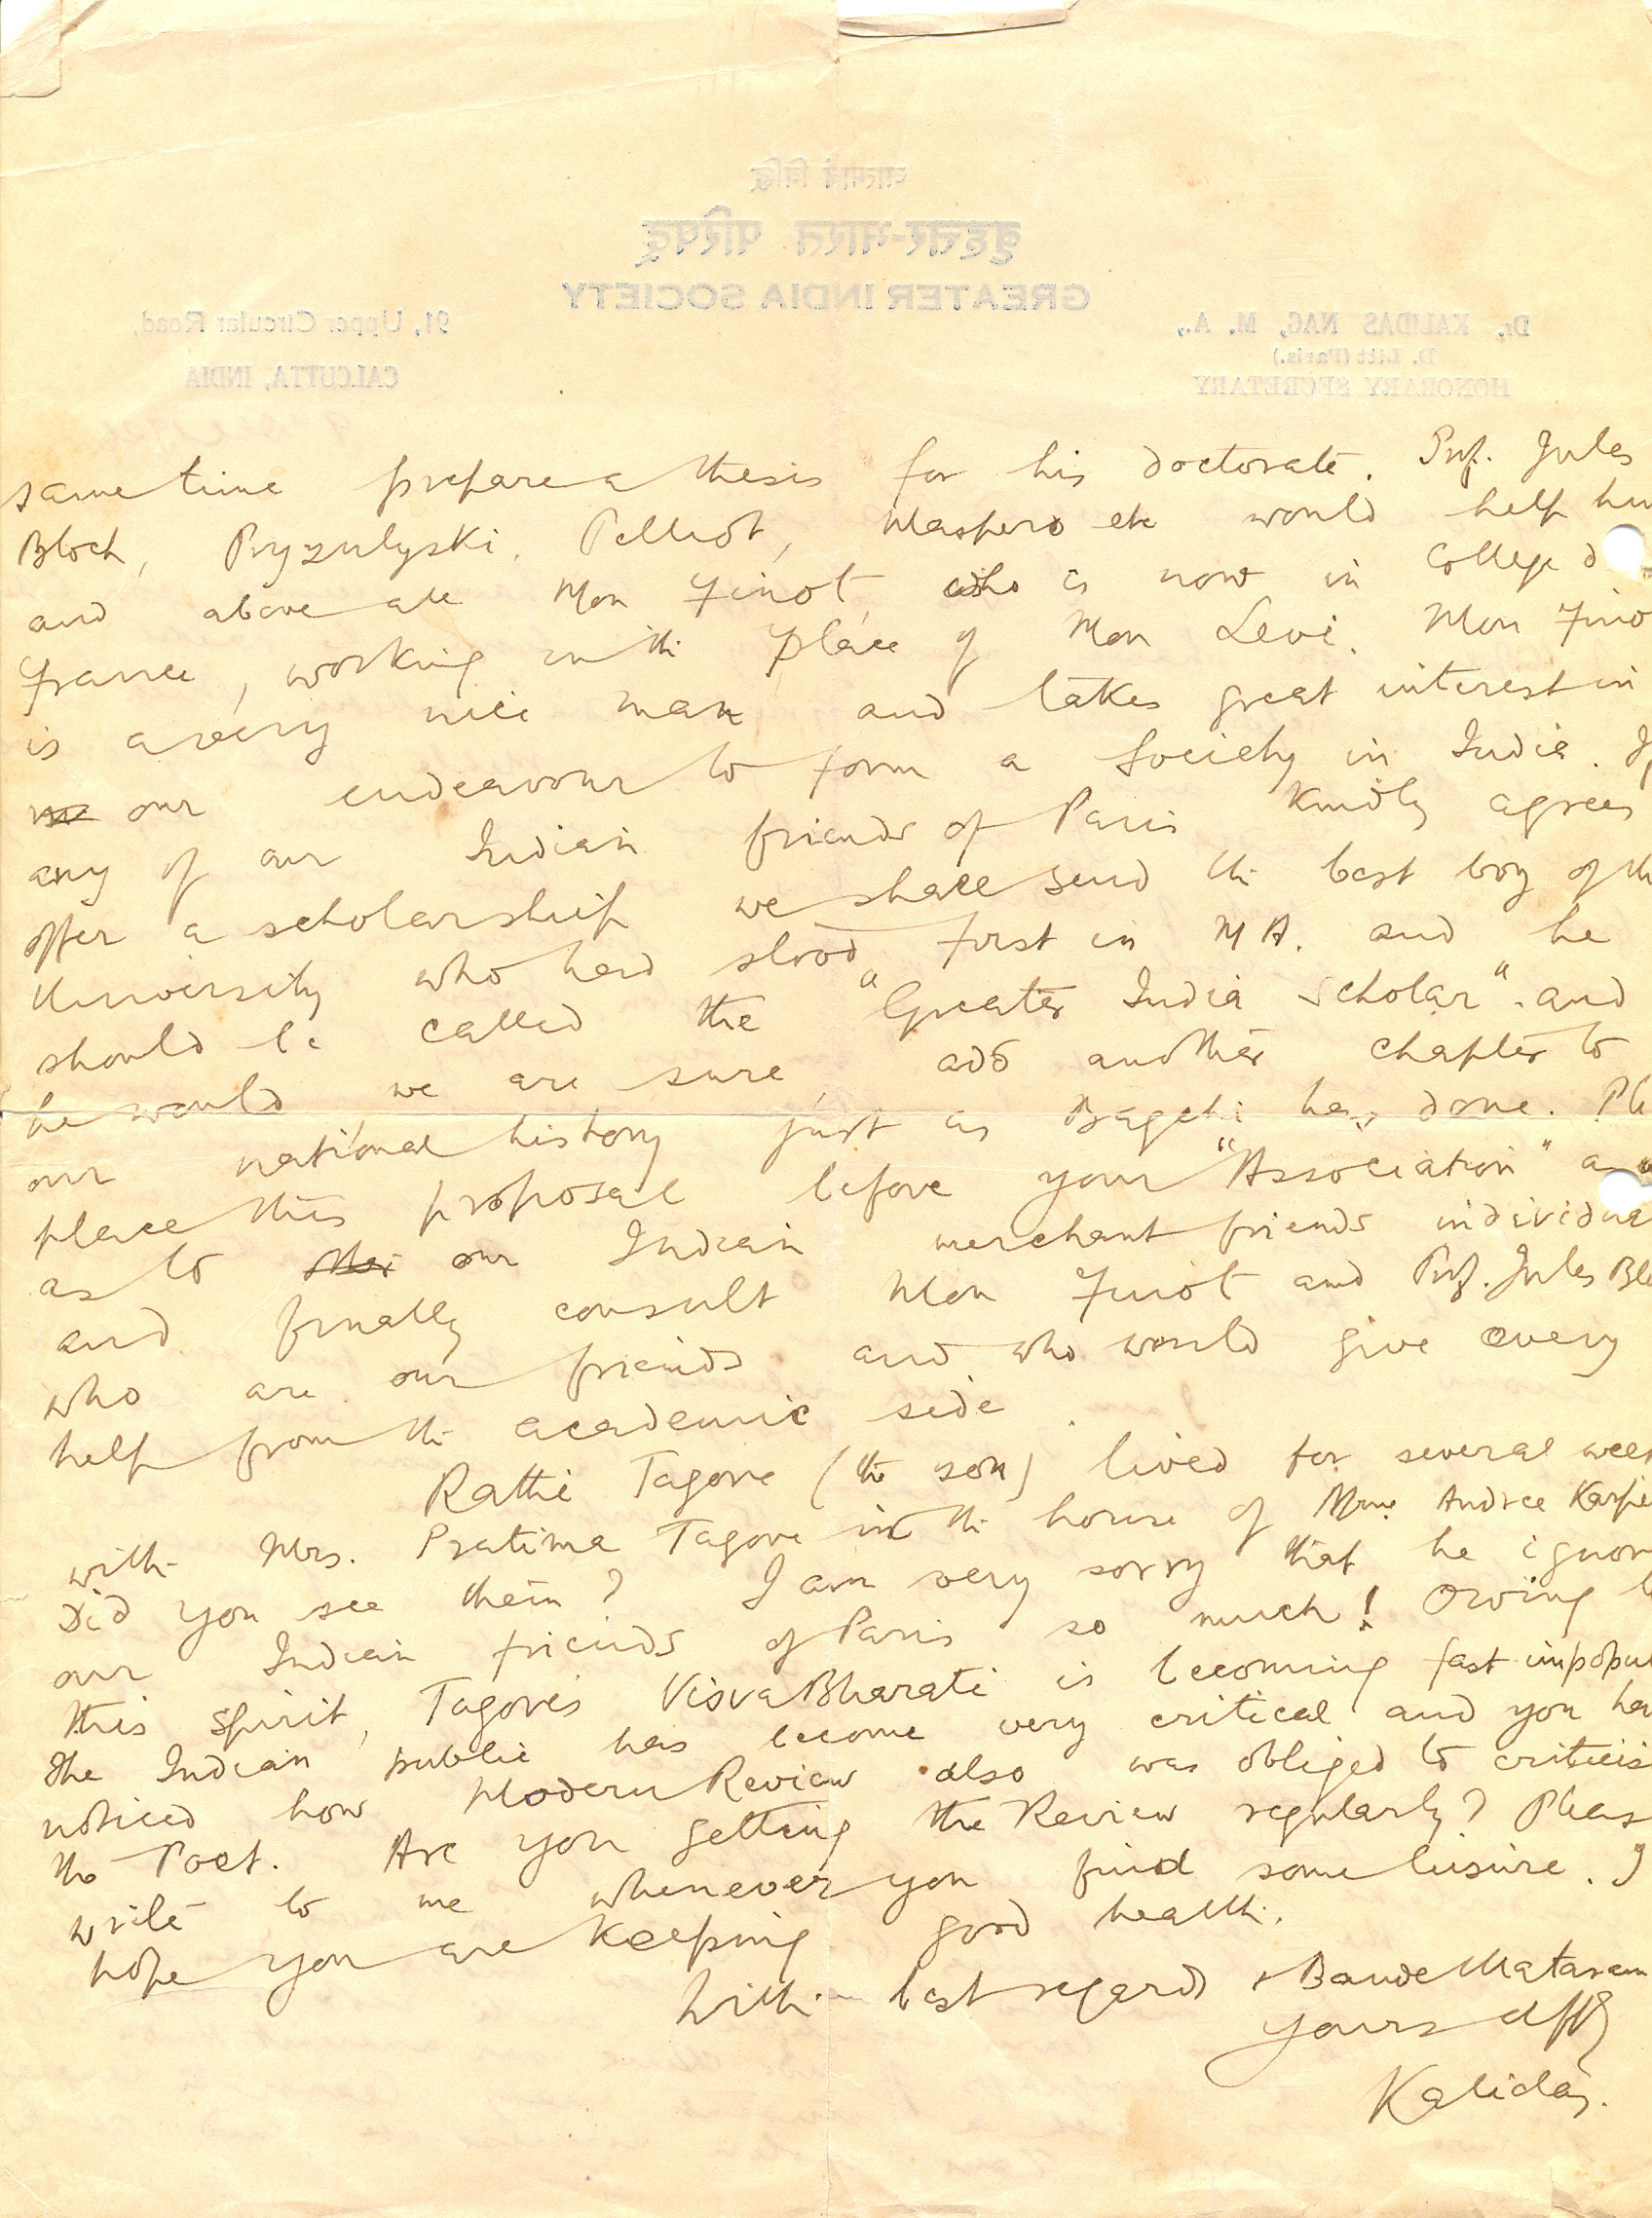 वृहत्तर-भारत परिषद्
GREATER INDIA SOCIETY
Dr. KALIDAS NAG, M. A.,
D. Litt (Paris.)
HONORARY SECRETARY
91, Upper Circular Road,
CALCUTTA, INDIA
same time prepare a thesis for his doctorate. Prof. Jules
Bloch, Pryzulyski, Pelliot, Maspero etc would help
and above all Mon Finot, who is now in College d
France, working in the place of Mon Levi. Mon Fino
is a very nice man and takes great interest in
our endeavour to form a Society in India.
any of our Indian friends of Paris kindly agrees
offer a scholarship we shall send the best boy of
University who had stood first in M A. and he
should be called the "Greater India Scholar". and
he would, we are sure, add another chapter to
our national history just as Bagchi has done. Ple
place this proposal before your "Association" a
as to our Indian merchant friends individua
and finally consult Mon Finot and Prof. Jules Blo
who are our friends and who would give every
help from the academic side.
Rathi Tagore (the son) lived for several week
with Mrs. Pratima Tagore in the house of Mme. Andree Karpe
Did you see them? I am very sorry that he ignor
our Indian friends of Paris so much! Owing t
this spirit, Tagore's VisvaBharati is becoming fast unpopu
the Indian public has become very critical and you ha
noticed how Modern Review also was obliged to criticis
the Poet. Are you getting the Review regularly? Pleas
write to me whenever you find some lisure. I
hope you are keeping good health.
With best regards & BandeMataram
Yours affly
Kalidas.